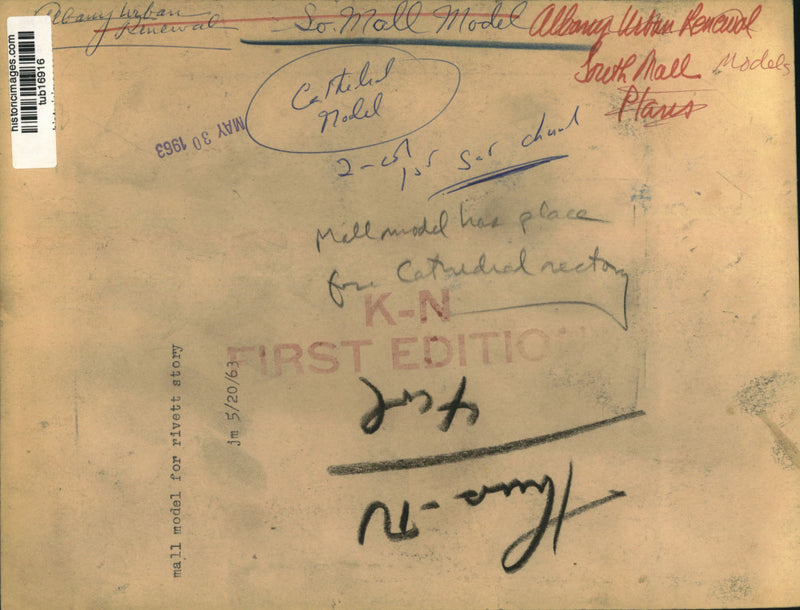 Albany Urban
Renewal
So. Mall Model
Albany Urban Renewal
South Mall
Plans
Models
historicimages.com
tub16916
Cathedral
Model
MAY 30 1963
2-col
1st Sat church
Mall model has place
for Cathedral rectory
K-N
FIRST EDITION
mall model for rivett story
jm 5/20/63
4 col
Thurs-N